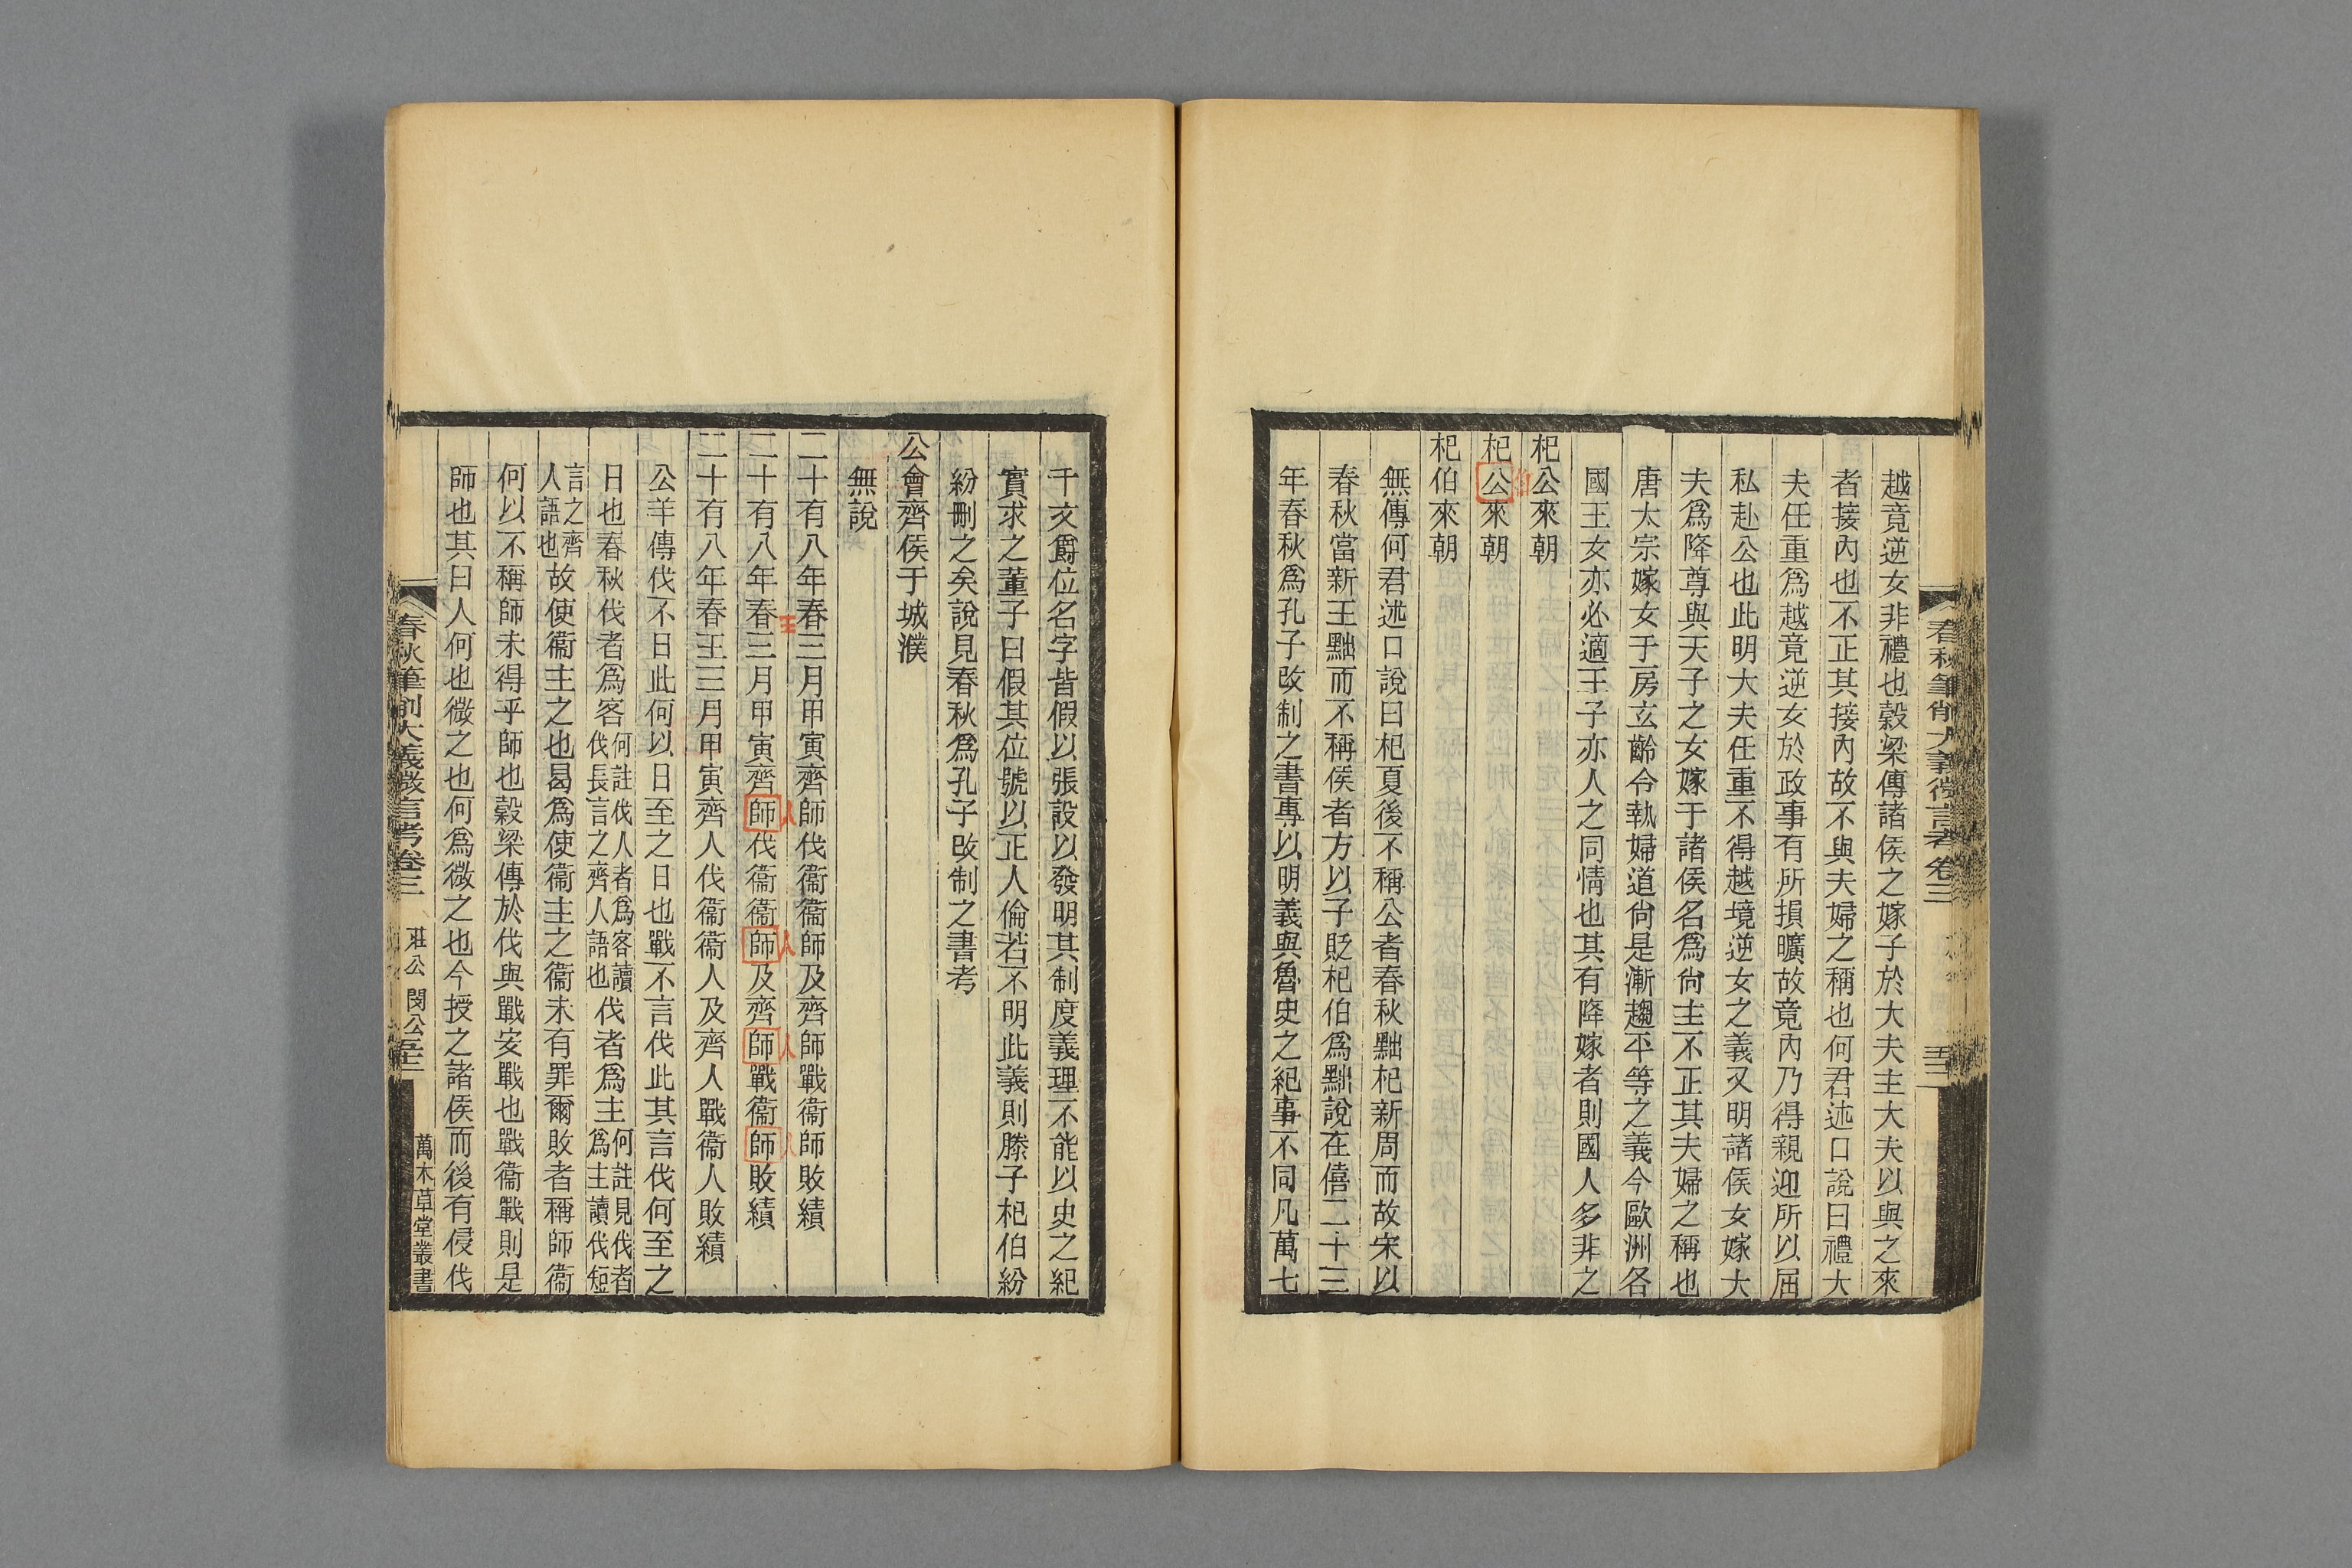 越竟逆女非禮也穀梁傳諸侯之嫁子於大夫主大夫以與之來
者接內也不正其接內故不與夫婦之稱也何君述口說曰禮大
夫任重爲越竟逆女於政事有所損曠故竟內乃得親迎所以屈
私赴公也此明大夫任重不得越境逆女之義又明諸侯女嫁大
夫爲降尊與天子之女嫁于諸侯名爲尙主不正其夫婦之稱也
唐太宗嫁女于房玄齡令執婦道尙是漸趨平等之義今歐洲各
國王女亦必適王子亦人之同情也其有降嫁者則國人多非之
杞公來朝
杞公來朝
伯
杞伯來朝
無傳何君述口說曰杞夏後不稱公者春秋黜杞新周而故宋以
春秋當新王黜而不稱侯者方以子貶杞伯爲黜說在僖二十三
年春秋爲孔子改制之書專以明義與魯史之紀事不同凡萬七
春秋筆削大義微言考卷三
千文爵位名字皆假以張設以發明其制度義理不能以史之紀
實求之董子曰假其位號以正人倫若不明此義則滕子杞伯紛
紛刪之矣說見春秋爲孔子改制之書考
公會齊侯于城濮
無說
二十有八年春三月甲寅齊師伐衞衞師及齊師戰衞師敗績
二十有八年春三月甲寅齊師伐衞衞師及齊師戰衞師敗績
王 人 人 人 人
二十有八年春王三月甲寅齊人伐衞衞人及齊人戰衞人敗績
公羊傳伐不日此何以日至之日也戰不言伐此其言伐何至之
日也春秋伐者爲客何註伐人者爲客讀伐長言之齊人語也伐者爲主何註見伐者爲主讀伐短
言之齊人語也故使衞主之也曷爲使衞主之衞未有罪爾敗者稱師衞
何以不稱師未得乎師也穀梁傳於伐與戰安戰也戰衞戰則是
師也其曰人何也微之也何爲微之也今授之諸侯而後有侵伐
春秋筆削大義微言考卷三 莊公 閔公 萬木草堂叢書